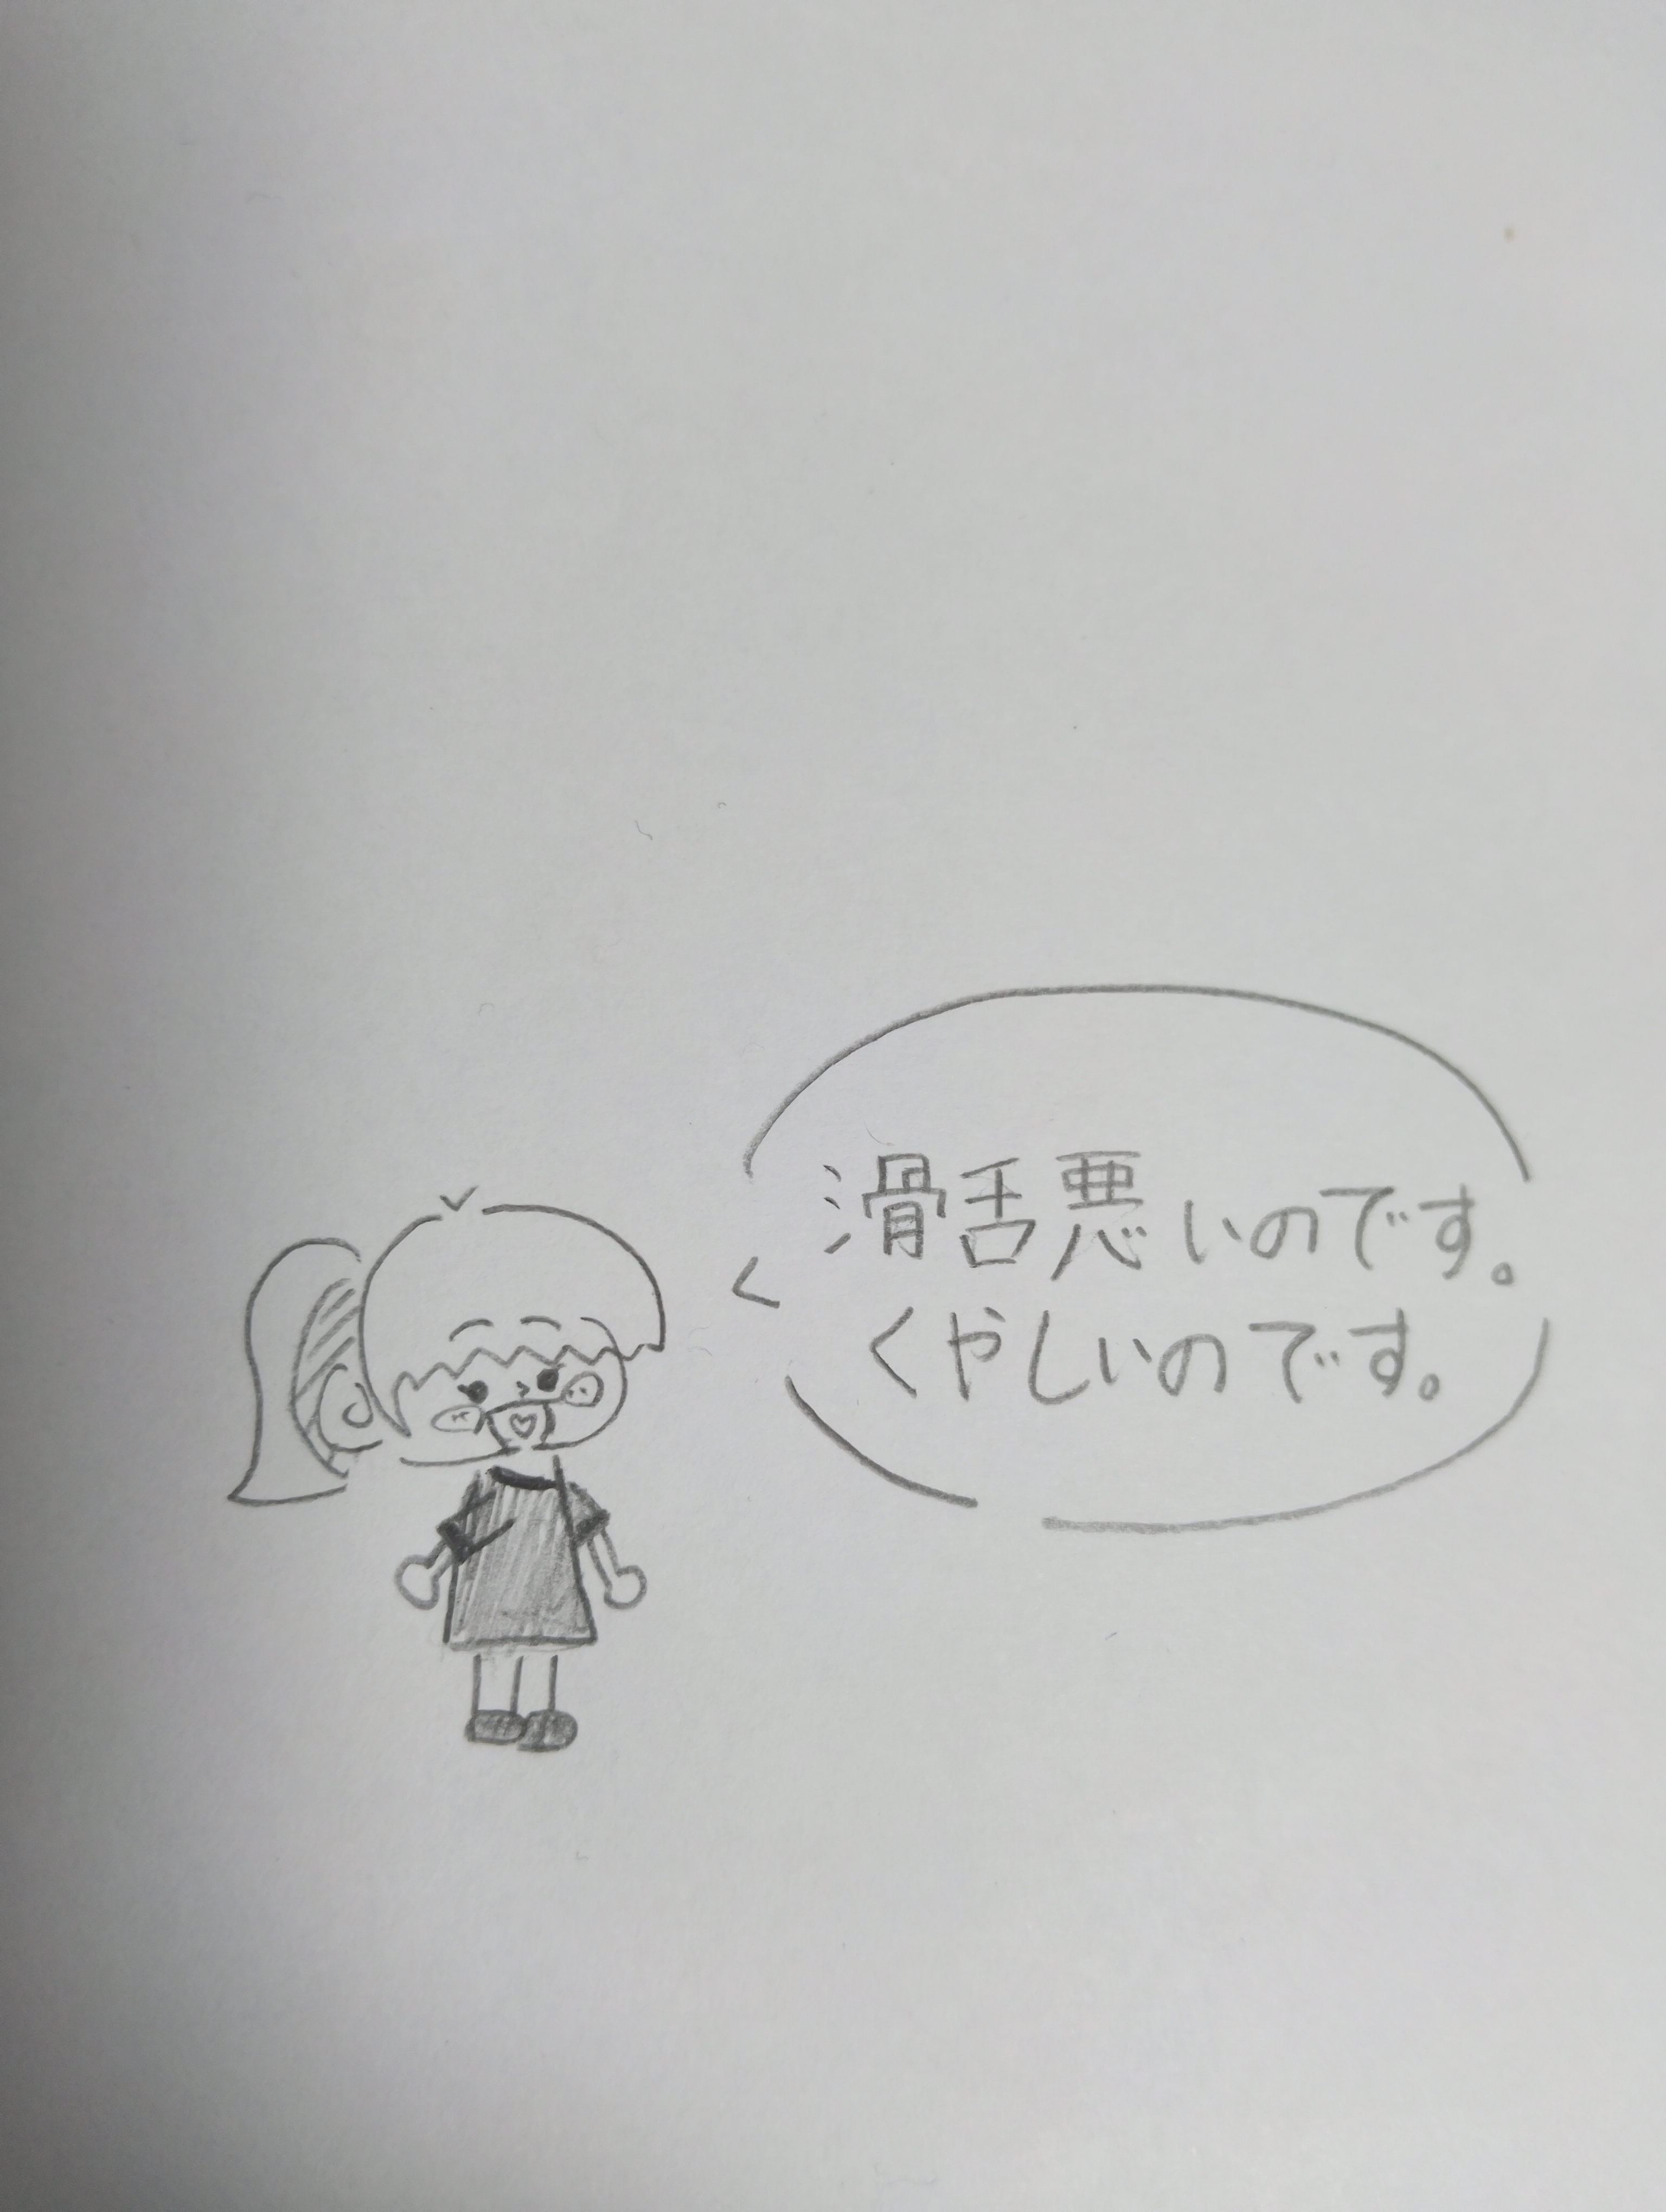 滑舌悪いのです。
くやしいのです。